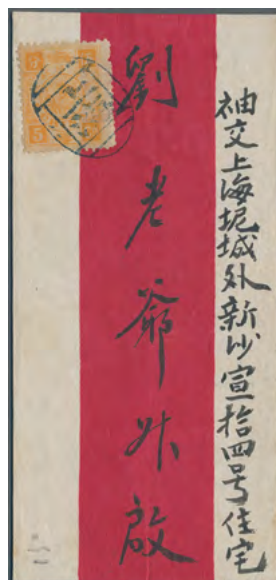 袖交上海坭城外新沙宣拾四号住宅
劉老爺升啟
5